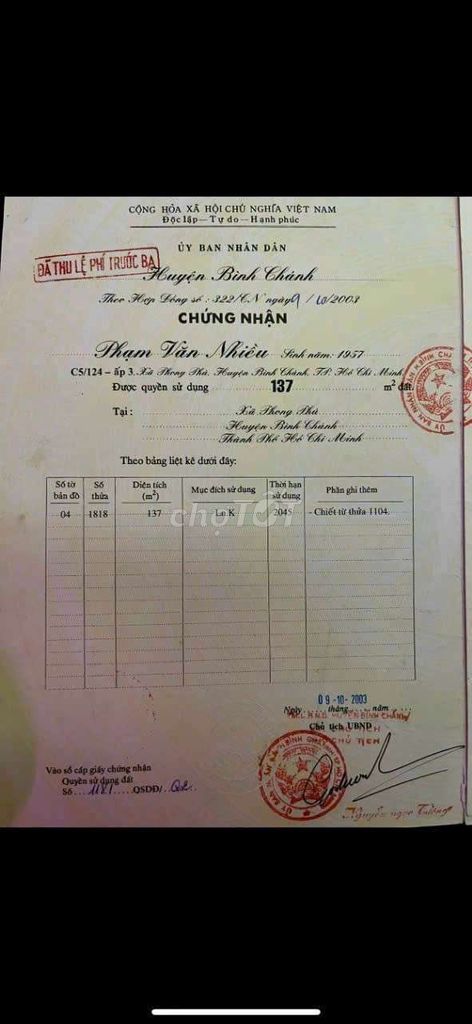 CỘNG HÒA XÃ HỘI CHỦ NGHĨA VIỆT NAM
Độc lập — Tự do — Hạnh phúc
ỦY BAN NHÂN DÂN
ĐÃ THU LỆ PHÍ TRƯỚC BẠ
Huyện Bình Chánh
Theo Hợp Đồng số : 322/CN ngày 9 / 10 /2003
CHỨNG NHẬN
Phạm Văn Nhiều Sinh năm: 1957
C5/124 - ấp 3. Xã Phong Phú, Huyện Bình Chánh, TP. Hồ Chí Minh
Được quyền sử dụng 137 m² đất.
Tại : Xã Phong Phú
Huyện Bình Chánh
Thành Phố Hồ Chí Minh
Theo bảng liệt kê dưới đây:
Số tờ bản đồ Số thửa Diện tích (m²) Mục đích sử dụng Thời hạn sử dụng Phần ghi thêm
04 1818 137 LnK 2045 - Chiết từ thửa 1104.
chợTỐT
09-10-2003
Ngày tháng năm
HUYỆN BÌNH CHÁNH
Chủ tịch UBND
CHỦ TỊCH
Vào sổ cấp giấy chứng nhận
Quyền sử dụng đất
Số 1181 QSDĐ/ Q2
Nguyễn ngọc Tường